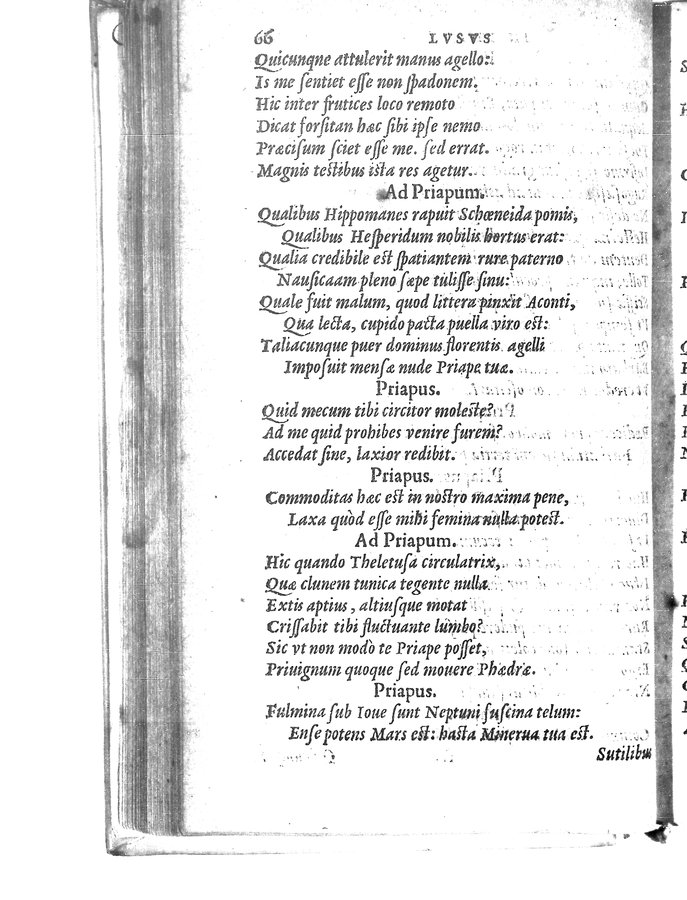 66 LVSVS
Quicunqne attulerit manus agello:
Is me ſentiet eſſe non ſpadonem.
Hic inter frutices loco remoto
Dicat forſitan hæc ſibi ipſe nemo
Præciſum ſciet eſſe me. ſed errat.
Magnis teſtibus iſta res agetur.
Ad Priapum.
Qualibus Hippomanes rapuit Schœneida pomis,
Qualibus Heſperidum nobilis hortus erat:
Qualia credibile eſt ſpatiantem rure paterno
Nauſicaam pleno ſæpe tuliſſe ſinu:
Quale fuit malum, quod littera pinxit Aconti,
Qua lecta, cupido pacta puella viro est:
Taliacunque puer dominus florentis agelli
Impoſuit menſæ nude Priape tuæ.
Priapus.
Quid mecum tibi circitor moleſte?
Ad me quid prohibes venire furem?
Accedat ſine, laxior redibit.
Priapus.
Commoditas hæc eſt in noſtro maxima pene,
Laxa quòd eſſe mihi femina nulla poteſt.
Ad Priapum.
Hic quando Theletuſa circulatrix,
Quæ clunem tunica tegente nulla
Extis aptius, altiuſque motat
Criſſabit tibi fluctuante lumbo?
Sic vt non modò te Priape poſſet,
Priuignum quoque ſed mouere Phædræ.
Priapus.
Fulmina ſub Ioue ſunt Neptuni fuſcina telum:
Enſe potens Mars eſt: haſta Minerua tua eſt.
Sutilibus